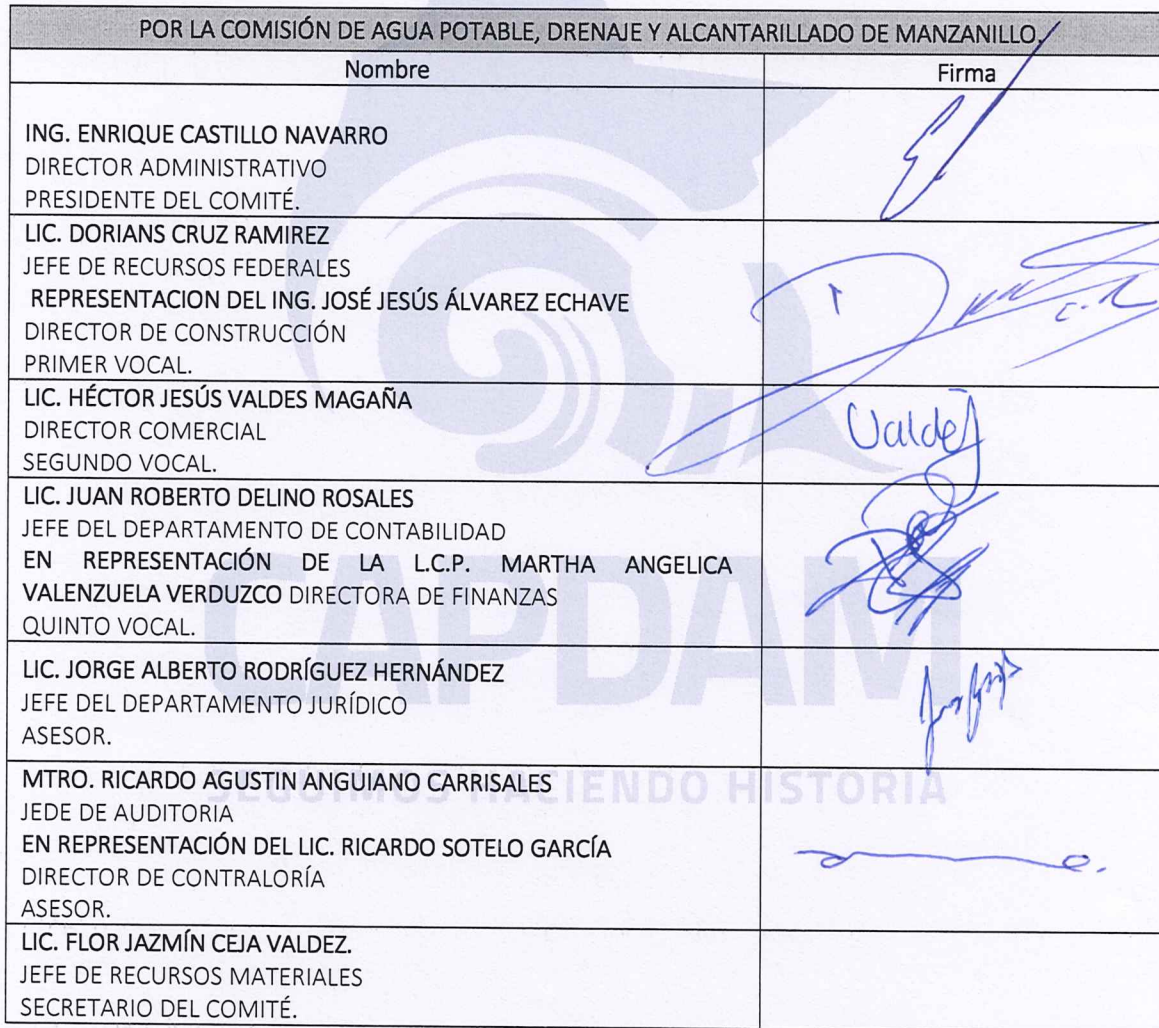 POR LA COMISIÓN DE AGUA POTABLE, DRENAJE Y ALCANTARILLADO DE MANZANILLO.
Nombre Firma
ING. ENRIQUE CASTILLO NAVARRO
DIRECTOR ADMINISTRATIVO
PRESIDENTE DEL COMITÉ.
LIC. DORIANS CRUZ RAMIREZ
JEFE DE RECURSOS FEDERALES
REPRESENTACION DEL ING. JOSÉ JESÚS ÁLVAREZ ECHAVE
DIRECTOR DE CONSTRUCCIÓN
PRIMER VOCAL.
LIC. HÉCTOR JESÚS VALDES MAGAÑA
DIRECTOR COMERCIAL
SEGUNDO VOCAL.
Valdes
LIC. JUAN ROBERTO DELINO ROSALES
JEFE DEL DEPARTAMENTO DE CONTABILIDAD
EN REPRESENTACIÓN DE LA L.C.P. MARTHA ANGELICA
VALENZUELA VERDUZCO DIRECTORA DE FINANZAS
QUINTO VOCAL.
CAPDAM
LIC. JORGE ALBERTO RODRÍGUEZ HERNÁNDEZ
JEFE DEL DEPARTAMENTO JURÍDICO
ASESOR.
MTRO. RICARDO AGUSTIN ANGUIANO CARRISALES
SEGUIMOS HACIENDO HISTORIA
JEDE DE AUDITORIA
EN REPRESENTACIÓN DEL LIC. RICARDO SOTELO GARCÍA
DIRECTOR DE CONTRALORÍA
ASESOR.
LIC. FLOR JAZMÍN CEJA VALDEZ.
JEFE DE RECURSOS MATERIALES
SECRETARIO DEL COMITÉ.